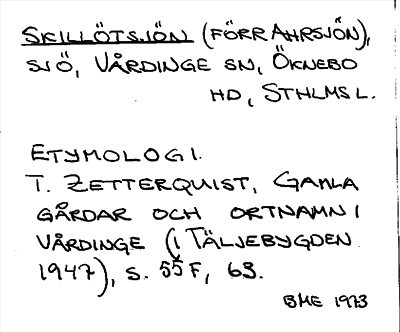 SKILLÖTSJÖN (FÖRR AHRSJÖN),
SJÖ, VÅRDINGE SN, ÖKNEBO
HD, STHLMS L.
ETYMOLOGI.
T. ZETTERQUIST, GAMLA
GÅRDAR OCH ORTNAMN I
VÅRDINGE (I TÄLJEBYGDEN
1947), S. 55 F, 63.
BME 1973